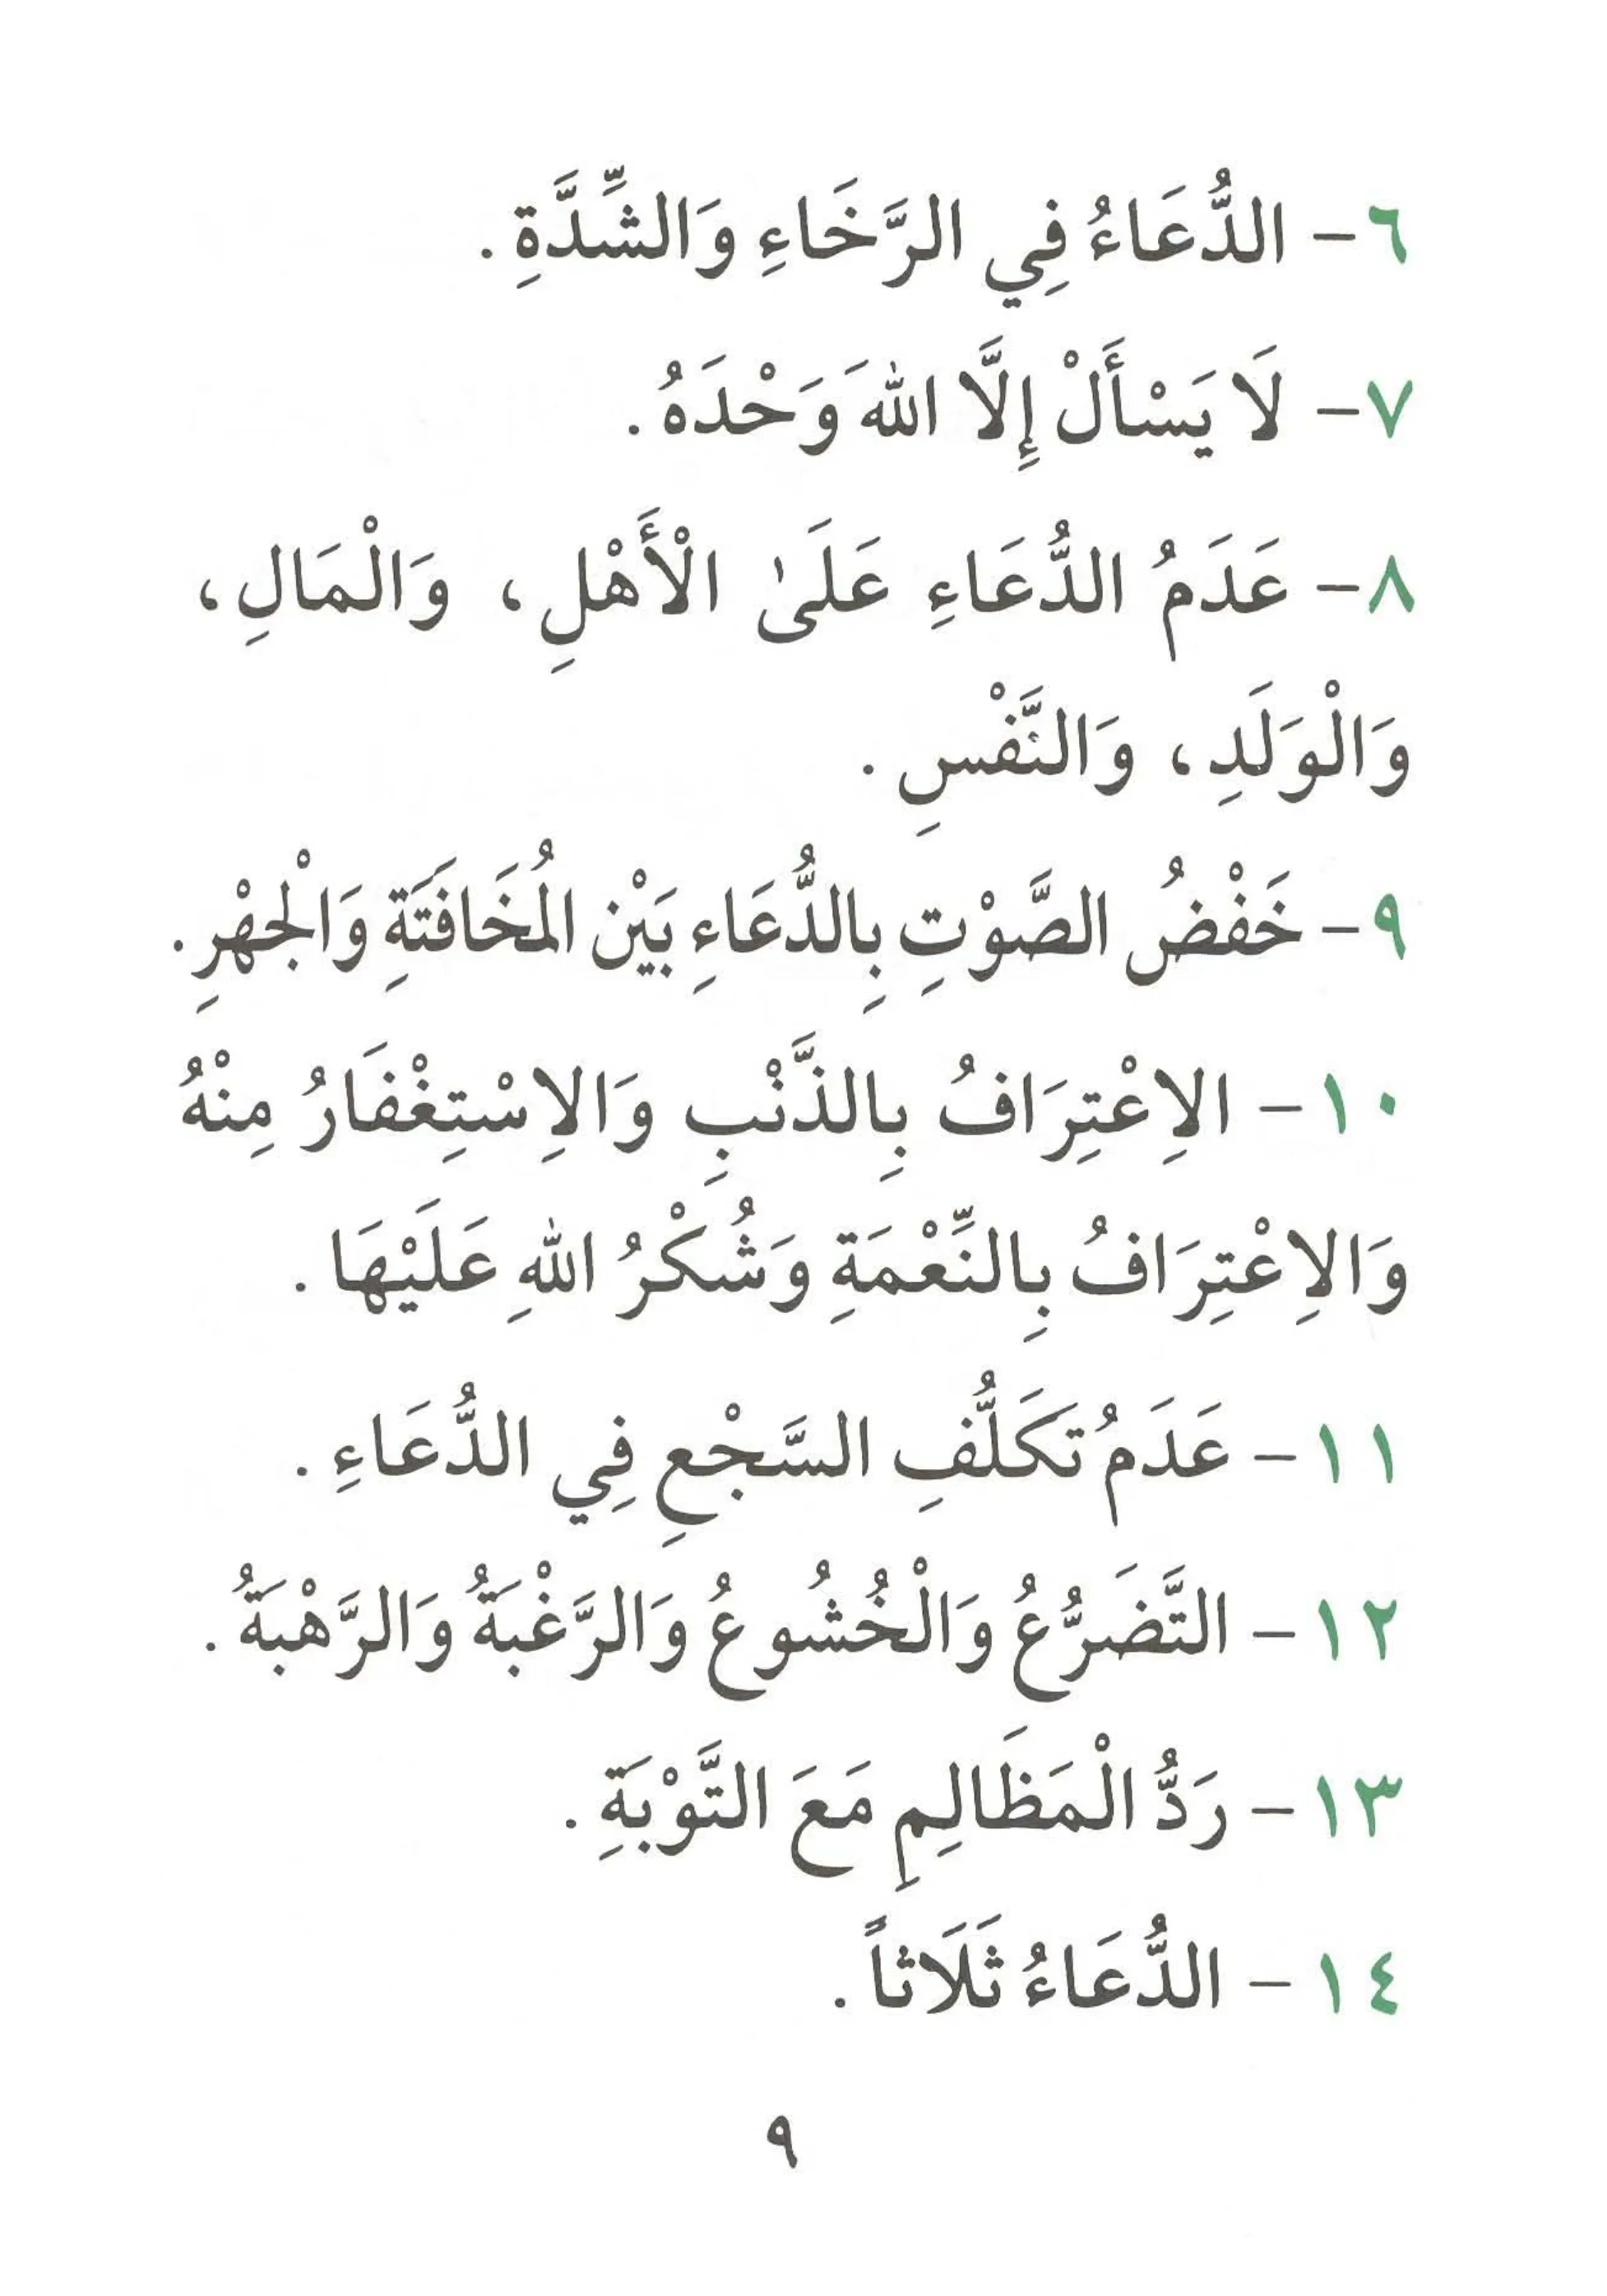 ٦- الدُّعَاءُ فِي الرَّخَاءِ وَالشِّدَّةِ.
٧- لَا يَسْأَلْ إِلَّا اللهَ وَحْدَهُ.
٨- عَدَمُ الدُّعَاءِ عَلَىٰ الْأَهْلِ، وَالْمَالِ،
وَالْوَلَدِ، وَالنَّفْسِ.
٩- خَفْضُ الصَّوْتِ بِالدُّعَاءِ بَيْن الْمُخَافَتَةِ وَالْجَهْرِ.
١٠- الِاعْتِرَافُ بِالذَّنْبِ وَالِاسْتِغْفَارُ مِنْهُ
وَالِاعْتِرَافُ بِالنِّعْمَةِ وَشُكْرُ اللهِ عَلَيْهَا.
١١- عَدَمُ تَكَلُّفِ السَّجْعِ فِي الدُّعَاءِ.
١٢- التَّضَرُّعُ وَالْخُشُوعُ وَالرَّغْبَةُ وَالرَّهْبَةُ.
١٣- رَدُّ الْمَظَالِمِ مَعَ التَّوْبَةِ.
١٤- الدُّعَاءُ ثَلَاثاً.
٩